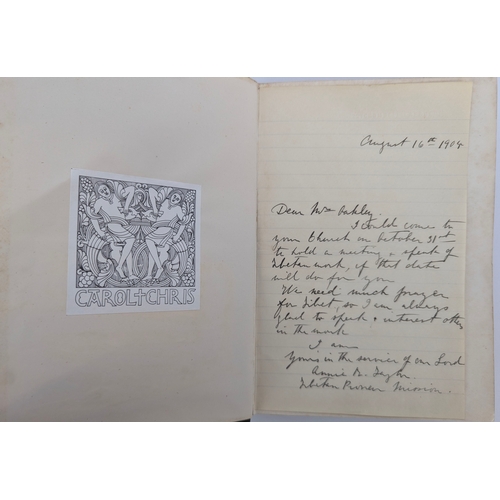 CAROL + CHRIS
August 16th 1904
Dear Mrs Oakley.
I could come to
your Church on October 31st
to hold a meeting & speak of
Tibetan work, if that date
will do for you
We need much prayer
for Tibet, so I am always
glad to speak & interest others
in the work
I am
yours in the service of our Lord
Annie R. Taylor
Tibetan Pioneer Mission.